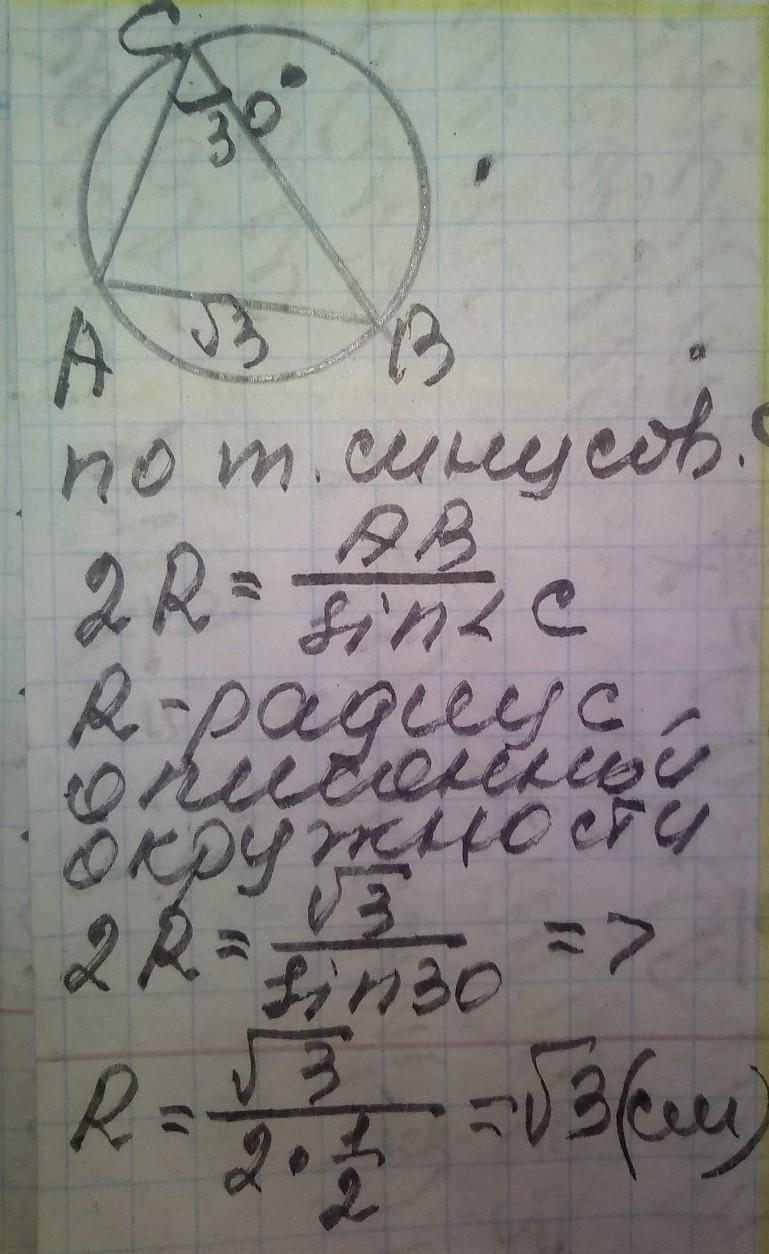 C
30°
A
√3
B
по т. синусов.
2R = AB / sin∠C
R - радиус
описанной
окружности
2R = √3 / sin30 =>
R = √3 / 2·1/2 = √3 (см)